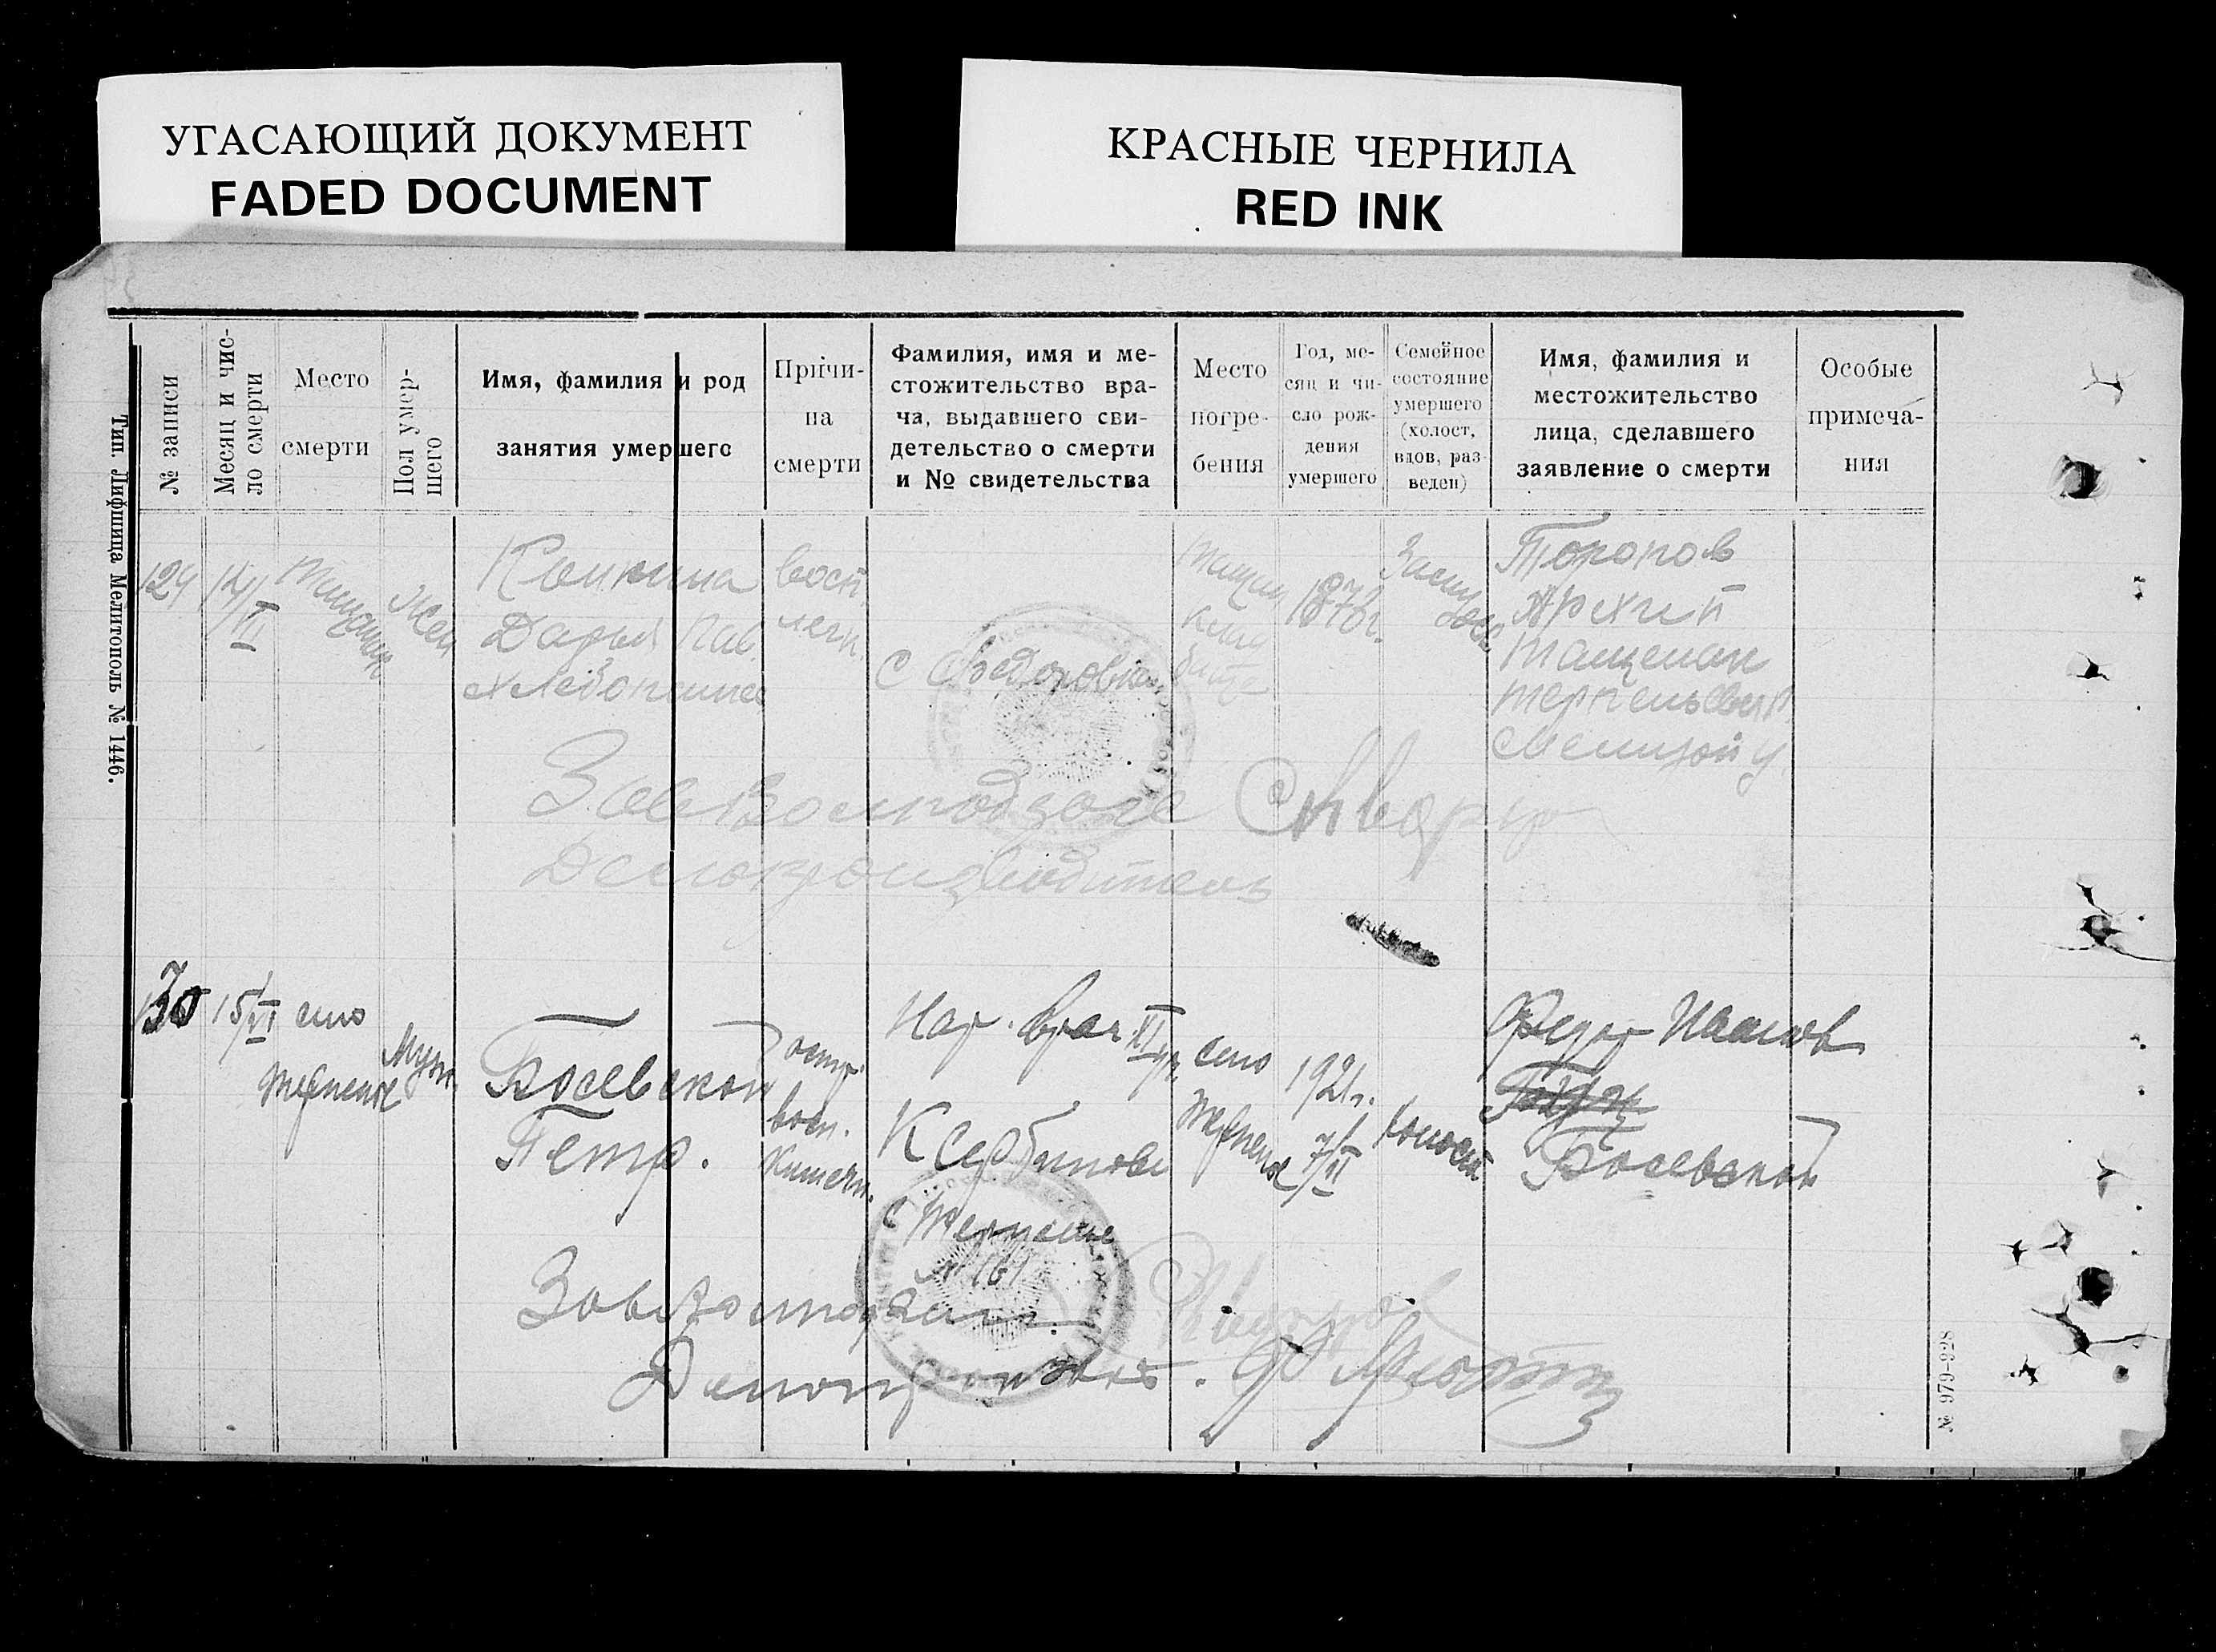 УГАСАЮЩИЙ ДОКУМЕНТ
FADED DOCUMENT
КРАСНЫЕ ЧЕРНИЛА
RED INK
Тип. Лифшица Мелитополь № 1446.
№ записи
Месяц и чис-
ло смерти
Место
смерти
Пол умер-
шего
Имя, фамилия и род
занятия умершего
Причи-
на
смерти
Фамилия, имя и ме-
стожительство вра-
ча, выдавшего сви-
детельство о смерти
и № свидетельства
Место
погре-
бения
Год, ме-
сяц и чи-
сло рож-
дения
умершего
Семейное
состояние
умершего
(холост,
вдов, раз-
веден)
Имя, фамилия и
местожительство
лица, сделавшего
заявление о смерти
Особые
примеча-
ния
129
14/VI
Тащенак
Жен
Дарья Пав.
восп.
легк.
С Федоровка
187
Торопов
Архип
Тащенак
Делопроизводитель
130
15/VI
село
Терпенье
Муж.
Босевской
Петр.
остр.
восп.
кишечн.
Нар. врач. VI уч.
К Сербинова
с Терпенье
№ 161
село
Терпенье
1921г.
7/VI
холост
Федор Иванов
Босевской
Делопроизвод.
№ 979-928